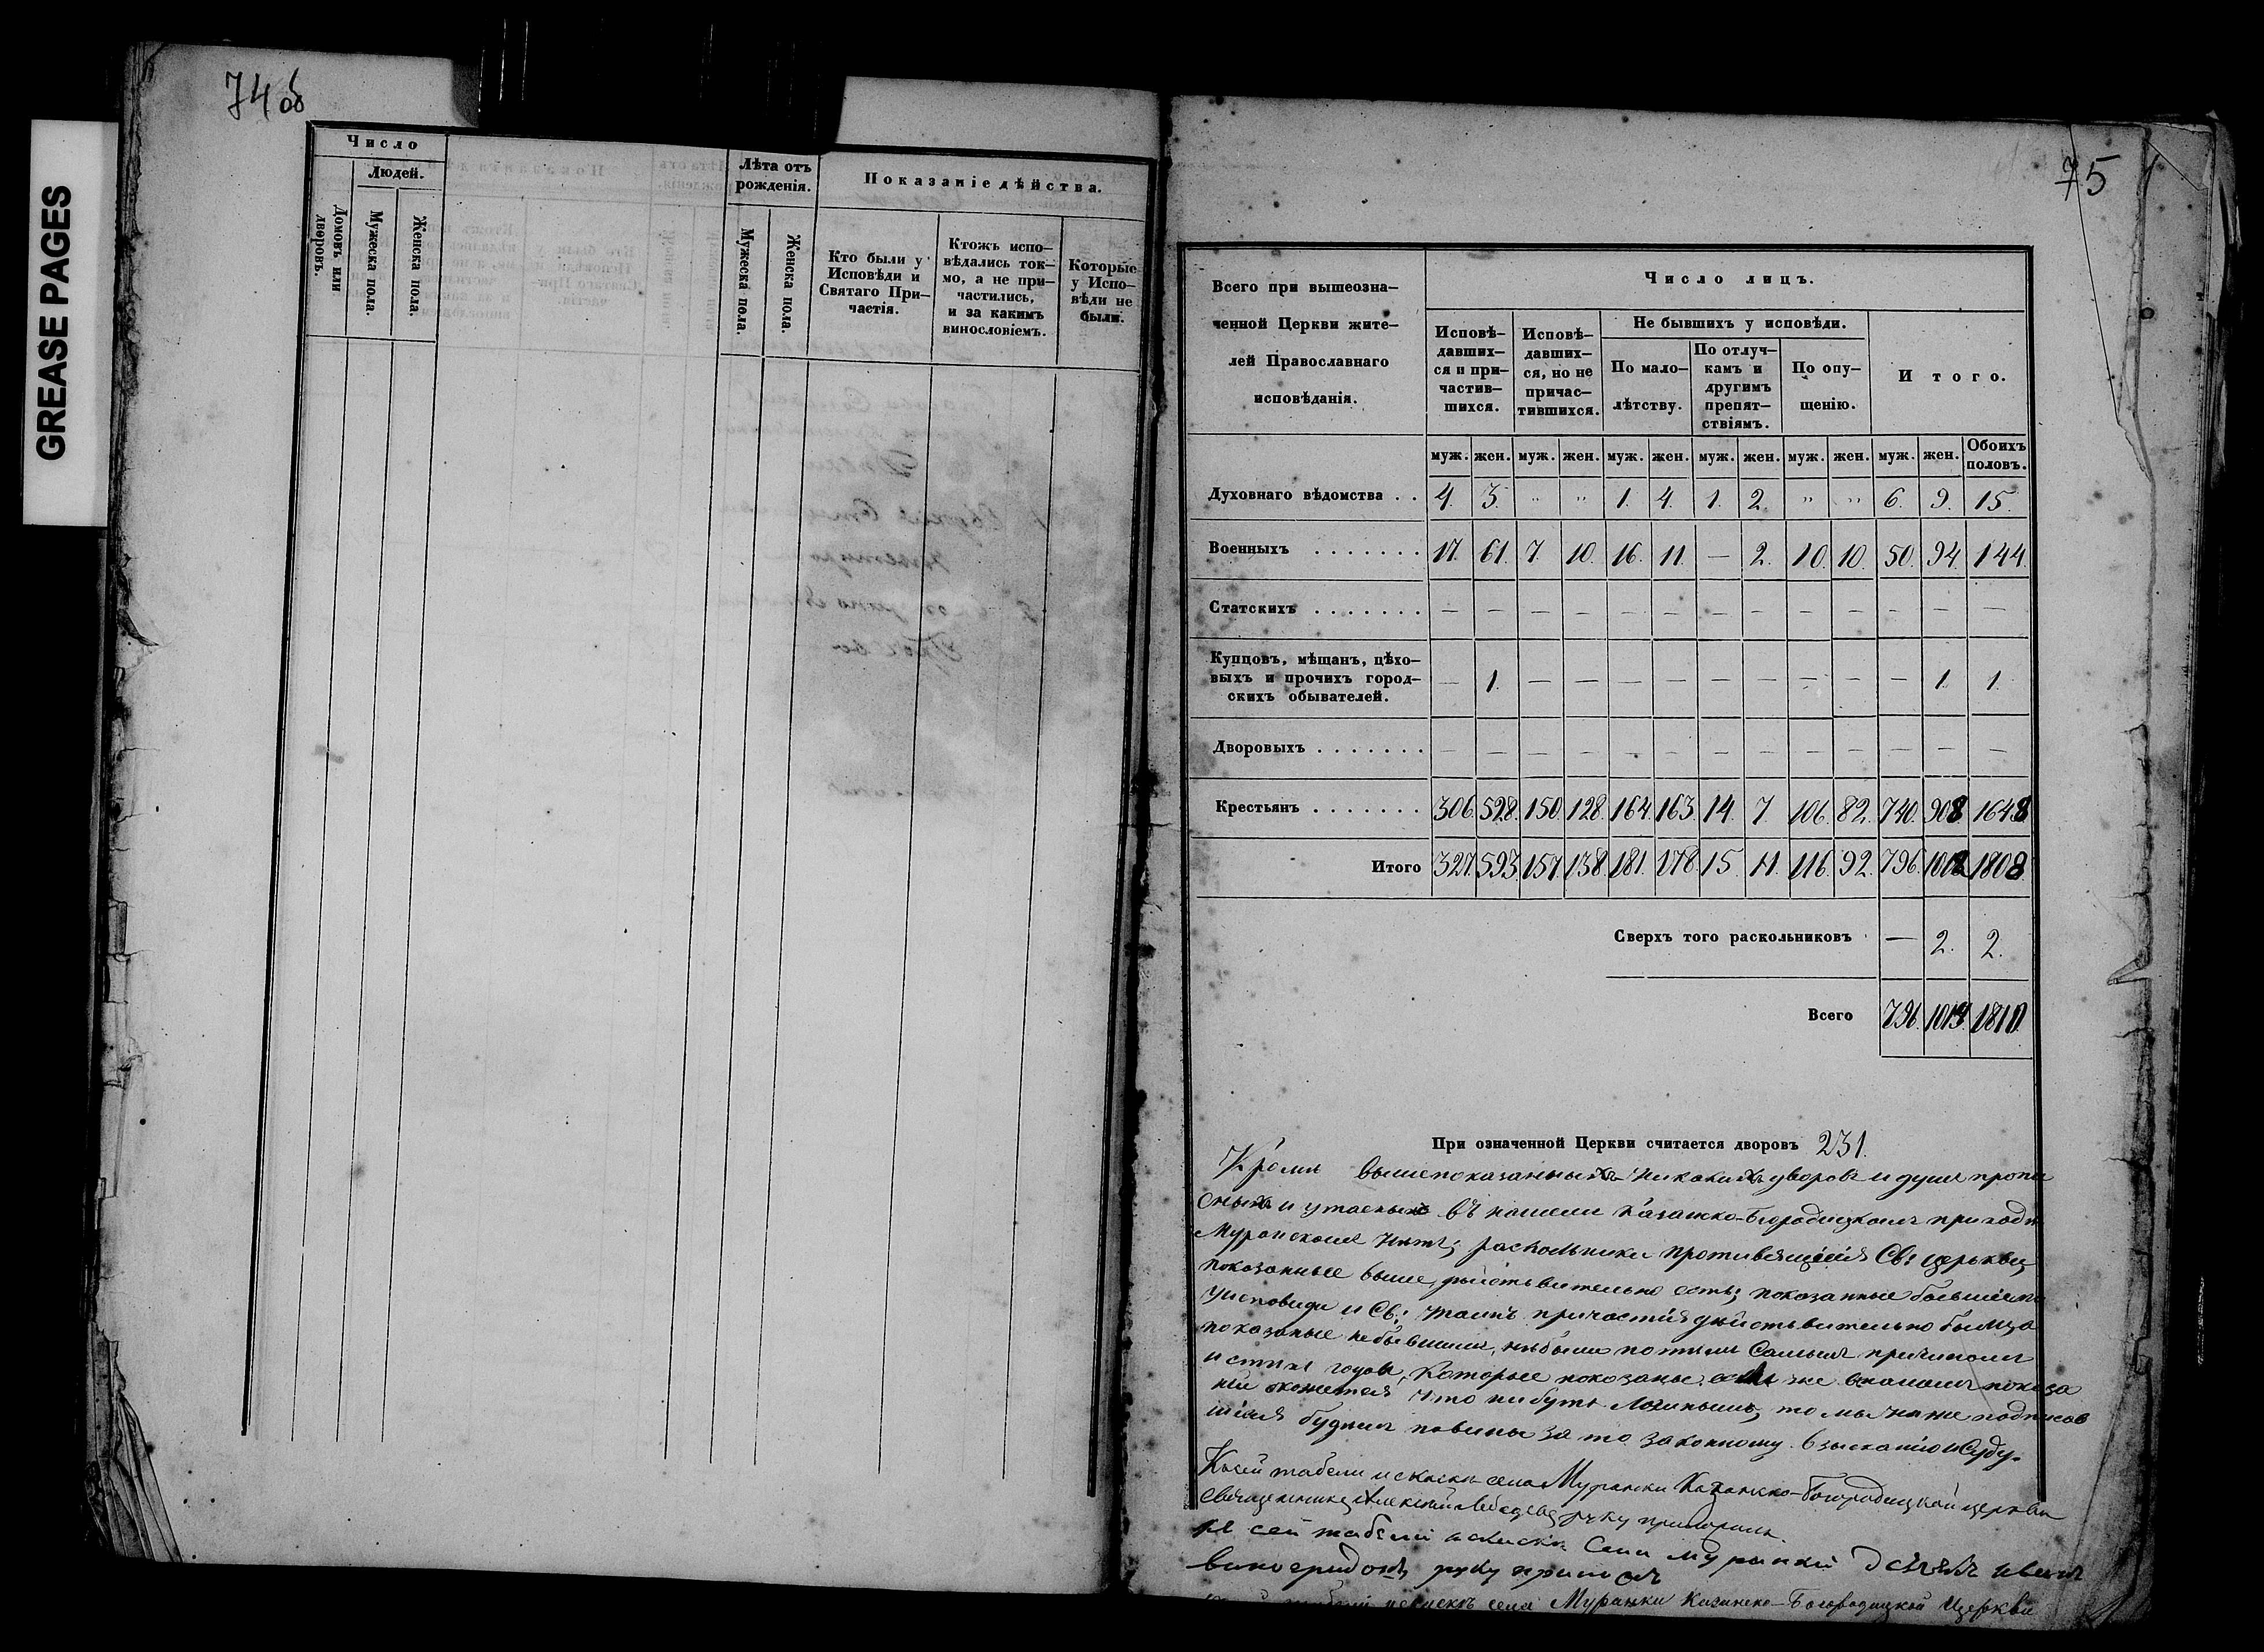 GREASE PAGES
74 об
Число
Людей.
Домовъ или дворовъ.
Мужеска пола.
Женска пола.
Лѣта отъ
рожденія.
Мужеска пола.
Женска пола.
Показаніе дѣйства.
Кто были у
Исповѣди и
Святаго При–
частія.
Ктожъ испо–
вѣдались ток–
мо, а не при–
частились,
и за какимъ
винословіемъ.
Которые
у Испо–
вѣди не
были.
75
Всего при вышеозна–
ченной Церкви жите–
лей Православнаго
исповѣданія.
Число лицъ.
Исповѣ–
давших–
ся и при–
частив–
шихся.
Исповѣ–
давших–
ся, но не
причас–
тившихся.
Не бывшихъ у исповѣди.
По мало–
лѣтству.
По отлуч–
камъ и
другимъ
препят–
ствіямъ.
По опу–
щенію.
Итого.
муж. жен. муж. жен. муж. жен. муж. жен. муж. жен. муж. жен. Обоихъ половъ.
Духовнаго вѣдомства . . 4. 3. " " 1. 4. 1. 2. " " 6. 9. 15.
Военныхъ . . . . . . . 17. 61. 7. 10. 16. 11. — 2. 10. 10. 50. 94. 144.
Статскихъ . . . . . . . — — — — — — — — — — — — —
Купцовъ, мѣщанъ, цѣхо–
выхъ и прочихъ город– — 1. — — — — — — — — — 1. 1.
скихъ обывателей.
Дворовыхъ . . . . . . . — — — — — — — — — — — — —
Крестьянъ . . . . . . . 306. 528. 150. 128. 164. 163. 14. 7. 106. 82. 740. 908 1648
Итого 327. 593. 157. 138. 181. 178. 15. 11. 116. 92. 796. 1012 1808.
Сверхъ того раскольниковъ — 2. 2.
Всего 796. 1014. 1810.
При означенной Церкви считается дворовъ 231.
Кромѣ вышепоказанныхъ никакихъ дворовъ и душъ пропи
сныхъ и утаеныхъ въ нашемъ Казанско-Богородицкомъ приходѣ
Муранскомъ нѣтъ; раскольники противящіися Св: церкви,
показанные выше, дѣйствительно есть; показанные бывшими
у исповѣди и Св: таинъ причастія дѣйствительно были, а
показаные небывшими, небыли по тѣмъ самымъ причинамъ
и стихъ годовъ, которые показаны. же в показа
ніи окажется что нибудь ложнымъ, то мы ниже подписав
шіися будемъ повины за то законному взысканію и Суду.
Къ сей табели и скаски села Муранки Казанско-Богородицкой церкви
Священникъ Алексій Лебедевъ руку приложилъ.
К сей табели и скаски Села Муранки Дьячекъ Иванъ
Виноградовъ руку приложилъ
села Муранки Казанско-Богородицкой Церкви